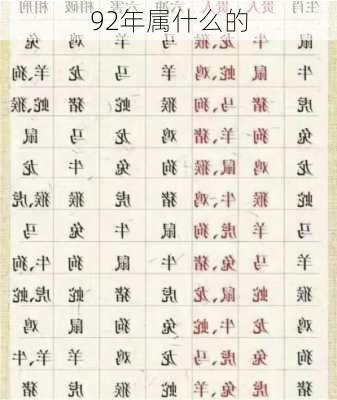 92年属什么的
生肖 贵人 贵人 六冲 六害 相破 相刑
鼠 牛 龙、猴 马 羊 鸡 兔
牛 鼠 蛇、鸡 羊 马 龙 羊、狗
虎 猪 马、狗 猴 蛇 猪 蛇、猴
兔 狗 羊、猪 鸡 龙 马 鼠
龙 鸡 鼠、猴 狗 兔 牛 龙
蛇 猴 牛、鸡 猪 虎 猴 虎、猴
马 羊 虎、狗 鼠 牛 兔 马
羊 马 兔、猪 牛 鼠 狗 牛、狗
猴 蛇 鼠、龙 虎 猪 蛇 虎、蛇
鸡 龙 牛、蛇 兔 狗 鼠 鸡
狗 兔 虎、马 龙 鸡 羊 牛、羊
猪 虎 兔、羊 蛇 猴 虎 猪